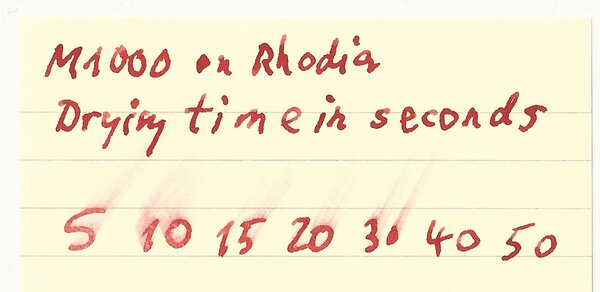 M1000 on Rhodia
Drying time in seconds
5 10 15 20 30 40 50